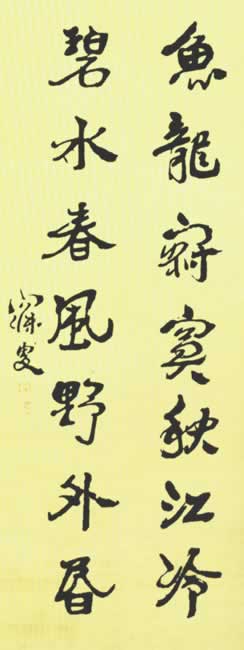 魚龍寂寞秋江冷
碧水春風野外昏
寐叟